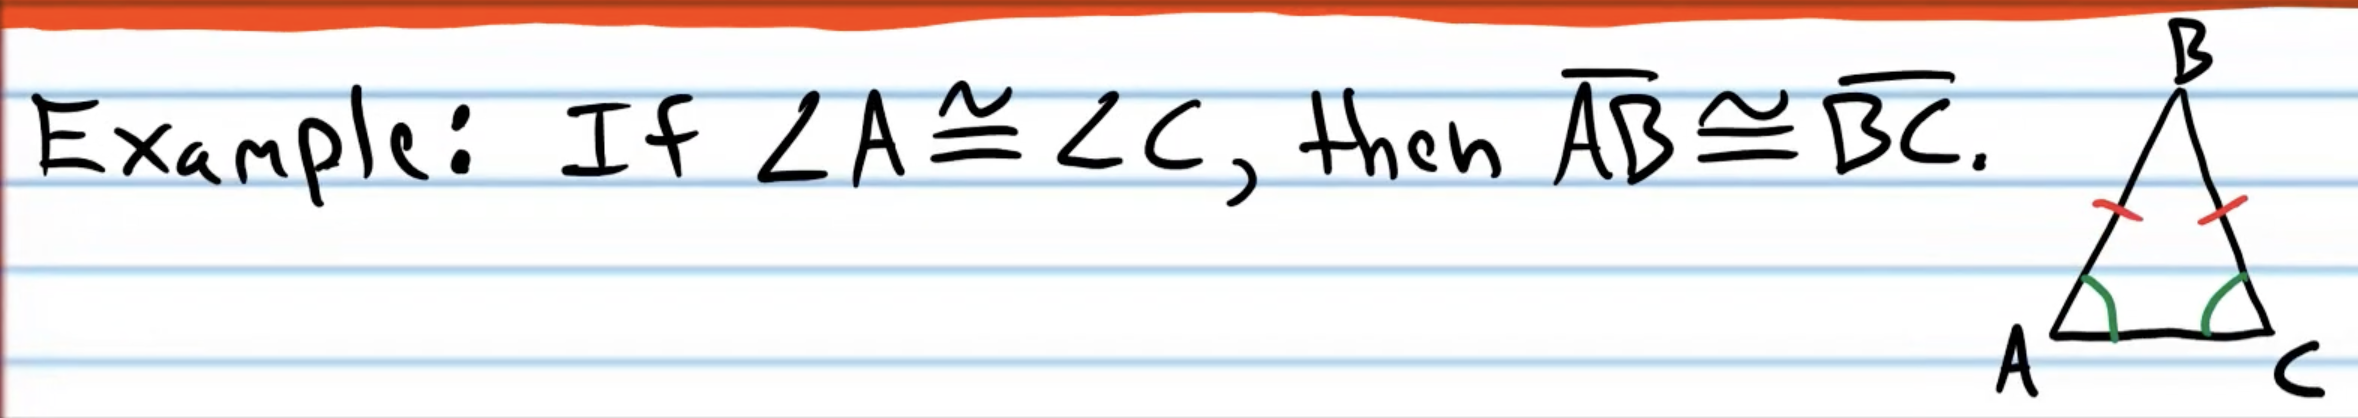 Example: If ∠A ≅ ∠C, then A̅B̅ ≅ B̅C̅.
B
A
C